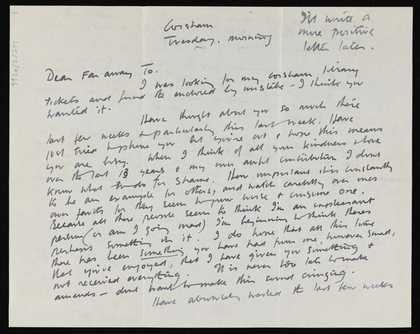 Corsham
Tuesday. morning
I'll write a
more positive
letter later.
Dear Far away To.
I was looking for my Corsham library
tickets and found the enclosed by mistake – I think you
wanted it.
Have thought about you so much these
last few weeks & particularly this last week. Have
just tried to phone you but you're out & hope this means
you are busy. When I think of all your kindness & love
over the last 18 years & my own awful contribution I don't
know what to do for shame. How important it is constantly
to be an example for others, and watch carefully over ones
own faults for they seem to grow worse & consume one.
Because all these people seem to think I'm an unpleasant
person (or am I going mad) I'm beginning to think there's
perhaps something in it. I do hope that all this time
there has been something you have had from me, however small,
that you've enjoyed, that I have given you something &
not received everything. It is never too late to make
amends – don't want to make this sound cringing.
Have absolutely worked the last few weeks